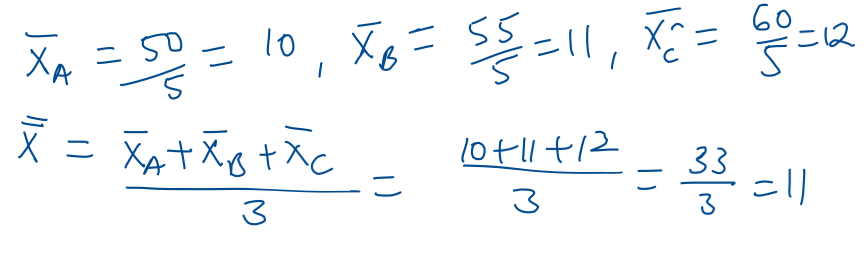 x̄_A = 50/5 = 10 , x̄_B = 55/5 = 11 , x̄_C = 60/5 = 12
x̿ = (x̄_A + x̄_B + x̄_C)/3 = (10+11+12)/3 = 33/3 = 11